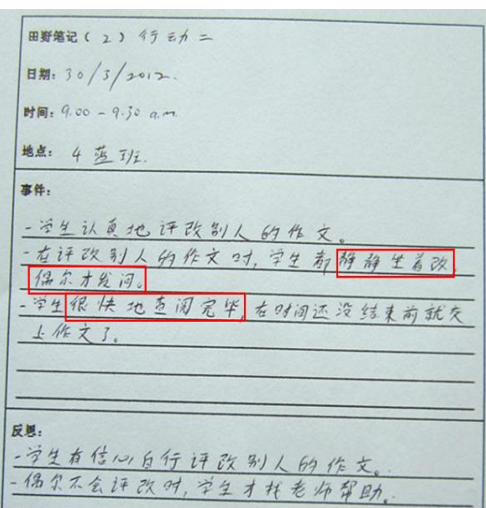 田野笔记（2）行动二
日期：30/3/2012.
时间：9.00 - 9.30 a.m.
地点：4 蓝班.
事件：
- 学生认真地评改别人的作文。
- 在评改别人的作文时，学生都静静坐着改，
偶尔才发问。
- 学生很快地查阅完毕，在时间还没结束前就交
上作文了。
反思：
- 学生有信心自行评改别人的作文。
- 偶尔不会评改时，学生才找老师帮助。